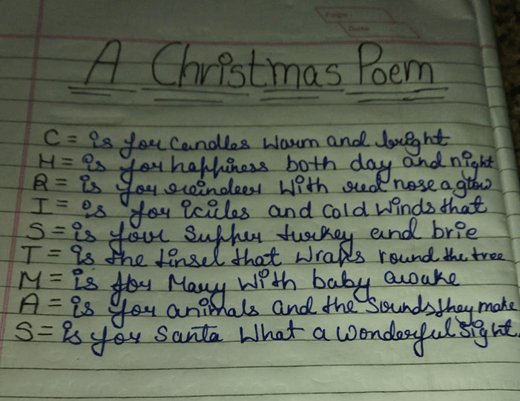 Page:
Date:
A Christmas Poem
C = is for Candles warm and bright
H = is for happiness both day and night
R = is for reindeer with red nose aglow
I = is for icicles and cold winds that
S = is your Supper turkey and brie
T = is the tinsel that wraps round the tree
M = is for Mary with baby awake
A = is for animals and the Sounds they make
S = is for Santa what a wonderful Sight.